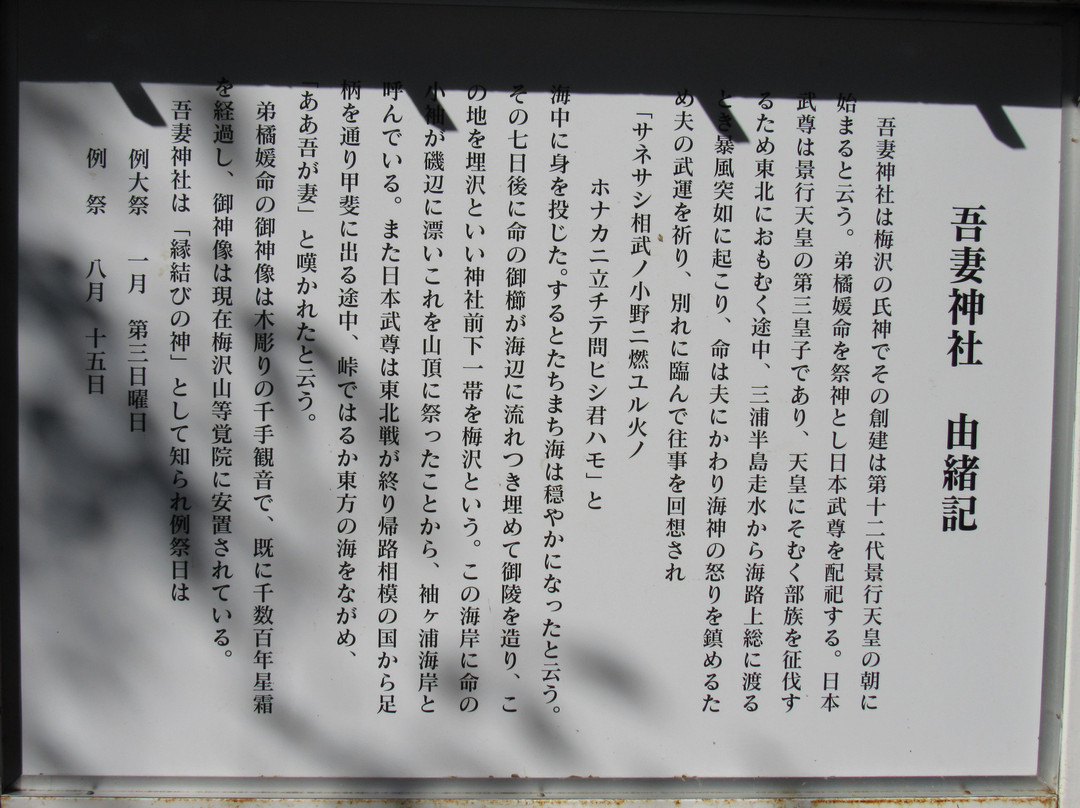 吾妻神社　由緒記
吾妻神社は梅沢の氏神でその創建は第十二代景行天皇の朝に
始まると云う。弟橘媛命を祭神とし日本武尊を配祀する。日本
武尊は景行天皇の第三皇子であり、天皇にそむく部族を征伐す
るため東北におもむく途中、三浦半島走水から海路上総に渡る
とき暴風突如に起こり、命は夫にかわり海神の怒りを鎮めるた
め夫の武運を祈り、別れに臨んで往事を回想され
「サネサシ相武ノ小野ニ燃ユル火ノ
ホナカニ立チテ問ヒシ君ハモ」と
海中に身を投じた。するとたちまち海は穏やかになったと云う。
その七日後に命の御櫛が海辺に流れつき埋めて御陵を造り、こ
の地を埋沢といい神社前下一帯を梅沢という。この海岸に命の
小袖が磯辺に漂いこれを山頂に祭ったことから、袖ヶ浦海岸と
呼んでいる。また日本武尊は東北戦が終り帰路相模の国から足
柄を通り甲斐に出る途中、峠ではるか東方の海をながめ、
「ああ吾が妻」と嘆かれたと云う。
弟橘媛命の御神像は木彫りの千手観音で、既に千数百年星霜
を経過し、御神像は現在梅沢山等覚院に安置されている。
吾妻神社は「縁結びの神」として知られ例祭日は
例大祭　一月　第三日曜日
例　祭　八月　十五日